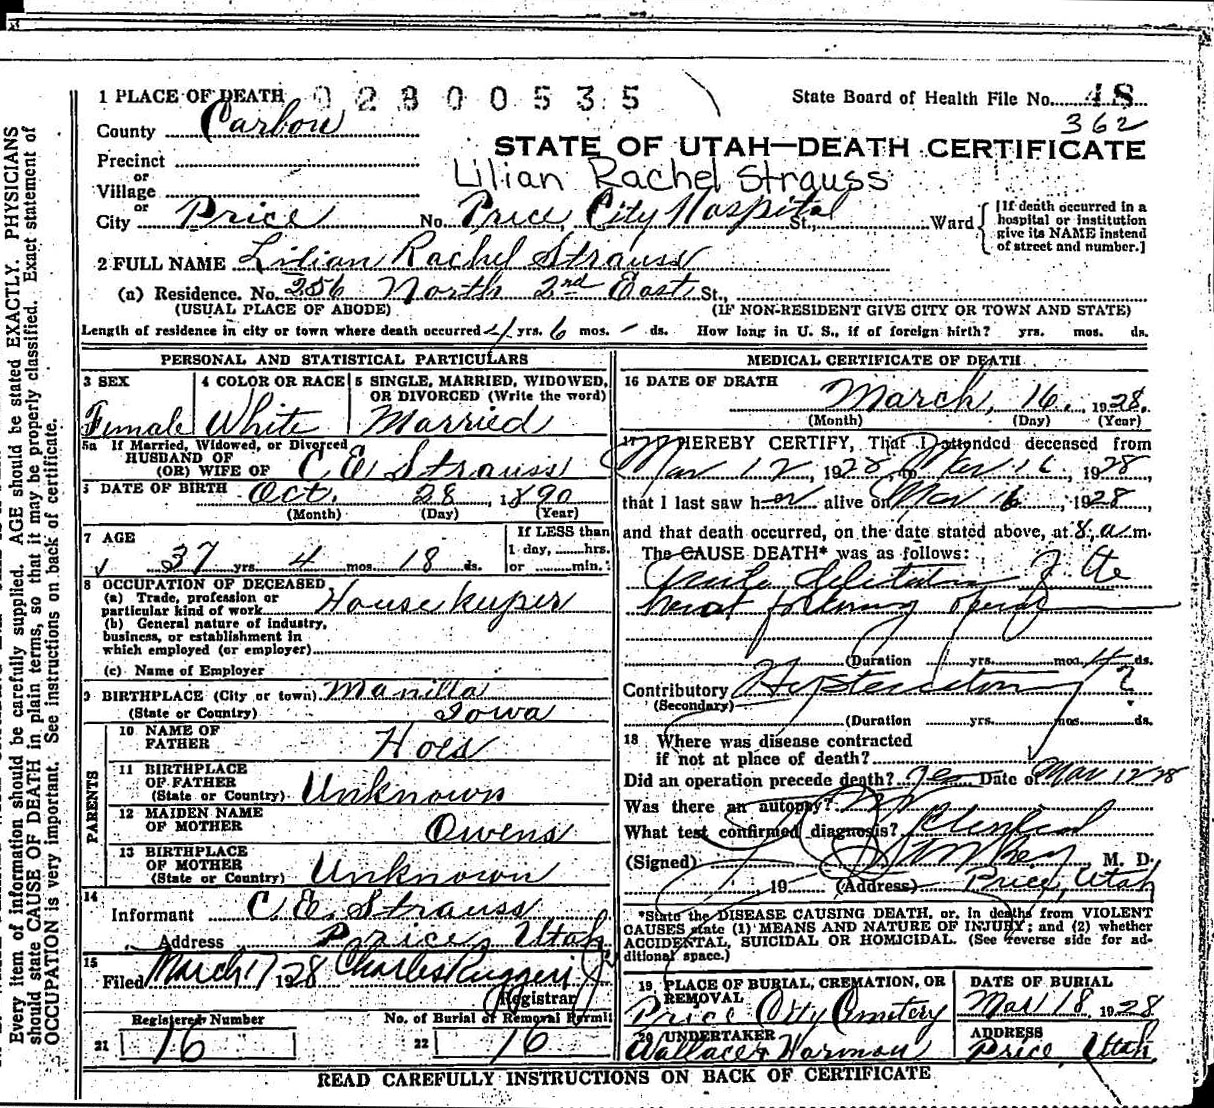 1 PLACE OF DEATH 02800535 State Board of Health File No. 48
County Carbon 362
STATE OF UTAH—DEATH CERTIFICATE
Precinct
or
Village
Lilian Rachel Strauss
or
City Price No. Price City Hospital St., Ward [If death occurred in a hospital or institution give its NAME instead of street and number.]
2 FULL NAME Lilian Rachel Strauss
(a) Residence. No. 256 North 2nd East St.,
(USUAL PLACE OF ABODE) (IF NON-RESIDENT GIVE CITY OR TOWN AND STATE)
Length of residence in city or town where death occurred 4 yrs. 6 mos. - ds. How long in U. S., if of foreign birth? yrs. mos. ds.
PERSONAL AND STATISTICAL PARTICULARS
3 SEX 4 COLOR OR RACE 5 SINGLE, MARRIED, WIDOWED,
OR DIVORCED (Write the word)
Female White Married
5a If Married, Widowed, or Divorced
HUSBAND OF
(OR) WIFE OF C E Strauss
DATE OF BIRTH Oct. 28 1890
(Month) (Day) (Year)
7 AGE If LESS than
1 day, hrs.
37 yrs. 4 mos. 18 ds. or min.
8 OCCUPATION OF DECEASED
(a) Trade, profession or
particular kind of work House keeper
(b) General nature of industry,
business, or establishment in
which employed (or employer)
(c) Name of Employer
9 BIRTHPLACE (City or town) Manilla
(State or Country) Iowa
PARENTS
10 NAME OF
FATHER Hoes
11 BIRTHPLACE
OF FATHER
(State or Country) Unknown
12 MAIDEN NAME
OF MOTHER Owens
13 BIRTHPLACE
OF MOTHER
(State or Country) Unknown
14
Informant C. E. Strauss
Address Price, Utah
15
Filed March 17 1928 Charles Ruggeri
Registrar
Registered Number No. of Burial or Removal Permit
21 16 22 16
MEDICAL CERTIFICATE OF DEATH
16 DATE OF DEATH
March, 16, 1928.
(Month) (Day) (Year)
17 I HEREBY CERTIFY, That I attended deceased from
Mar 12, 1928, to Mar 16, 1928
that I last saw her alive on Mar 16, 1928,
and that death occurred, on the date stated above, at 8 a.m.
The CAUSE DEATH* was as follows:
Acute dilitation of the
heart following
(Duration yrs. mos. 4 ds.
Contributory ?
(Secondary)
(Duration yrs. mos. ds.
18 Where was disease contracted
if not at place of death?
Did an operation precede death? Yes Date of Mar 12 28
Was there an autopsy? No
What test confirmed diagnosis? Clinical
(Signed) M. D.
, 19 (Address) Price, Utah
*State the DISEASE CAUSING DEATH, or, in deaths from VIOLENT
CAUSES state (1) MEANS AND NATURE OF INJURY; and (2) whether
ACCIDENTAL, SUICIDAL OR HOMICIDAL. (See reverse side for ad-
ditional space.)
19 PLACE OF BURIAL, CREMATION, OR
REMOVAL
Price City Cemetery
DATE OF BURIAL
Mar 18, 1928
20 UNDERTAKER
Wallace & Harmon
ADDRESS
Price Utah
READ CAREFULLY INSTRUCTIONS ON BACK OF CERTIFICATE
Every item of information should be carefully supplied. AGE should be stated EXACTLY. PHYSICIANS
should state CAUSE OF DEATH in plain terms, so that it may be properly classified. Exact statement of
OCCUPATION is very important. See instructions on back of certificate.